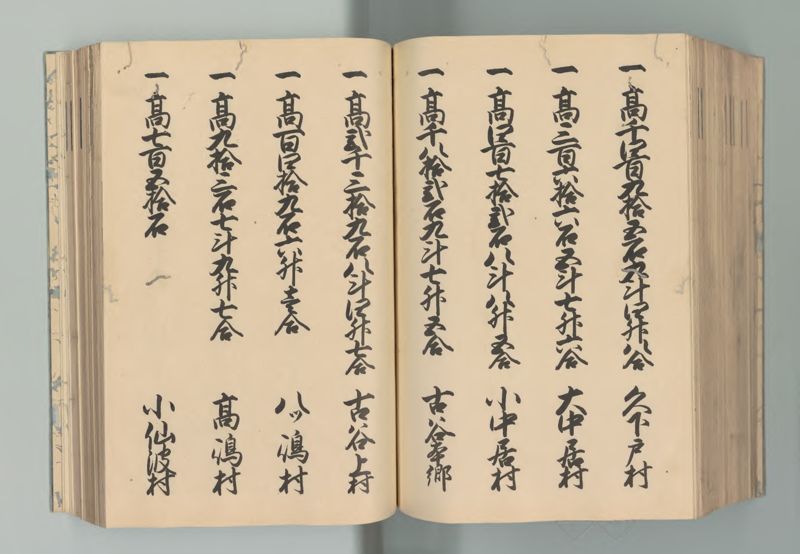 一高千四百九拾五石五斗四升八合 久下戸村
一高三百六拾六石五斗七升六合 大中居村
一高四百七拾弐石八斗八升五合 小中居村
一高千八拾弐石九斗七升五合 古谷本郷
一高弐千三拾九石八斗四升七合 古谷上村
一高百四拾九石六升壱合 八ツ嶋村
一高九拾三石七斗九升七合 高嶋村
一高七百五拾石 小仙波村